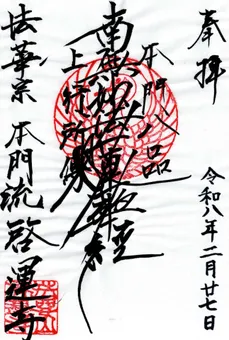 奉拝
令和八年二月廿七日
本門八品
上行所傳
南無妙法蓮華経
法華宗 本門流 啓運寺